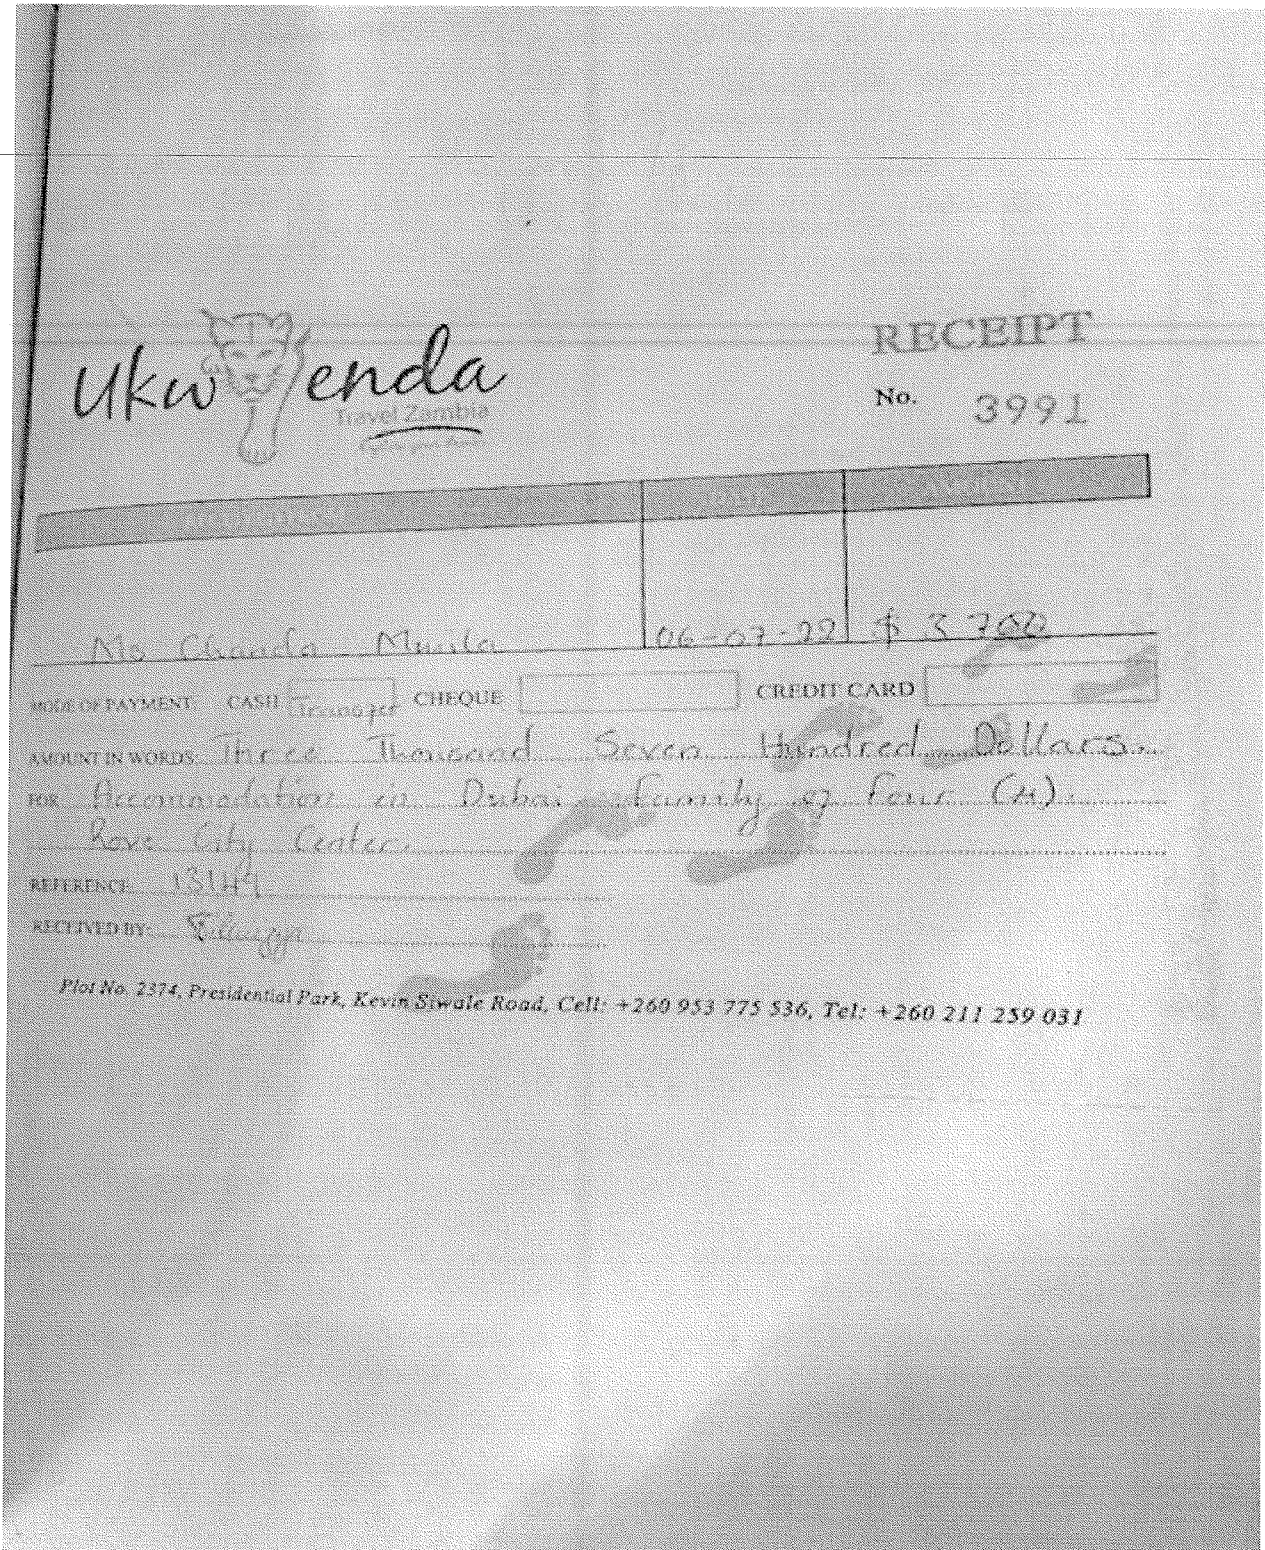 Ukwenda
Travel Zambia
RECEIPT
No. 3991
Ms Chanda Musila 06-07-22 $ 3 700
MODE OF PAYMENT: CASH Transfer CHEQUE CREDIT CARD
AMOUNT IN WORDS: Three Thousand Seven Hundred Dollars.
FOR Accommodation in Dubai family of Four (4).
Rove City Center.
REFERENCE: 13149
RECEIVED BY:
Plot No. 2374, Presidential Park, Kevin Siwale Road, Cell: +260 953 775 536, Tel: +260 211 259 031